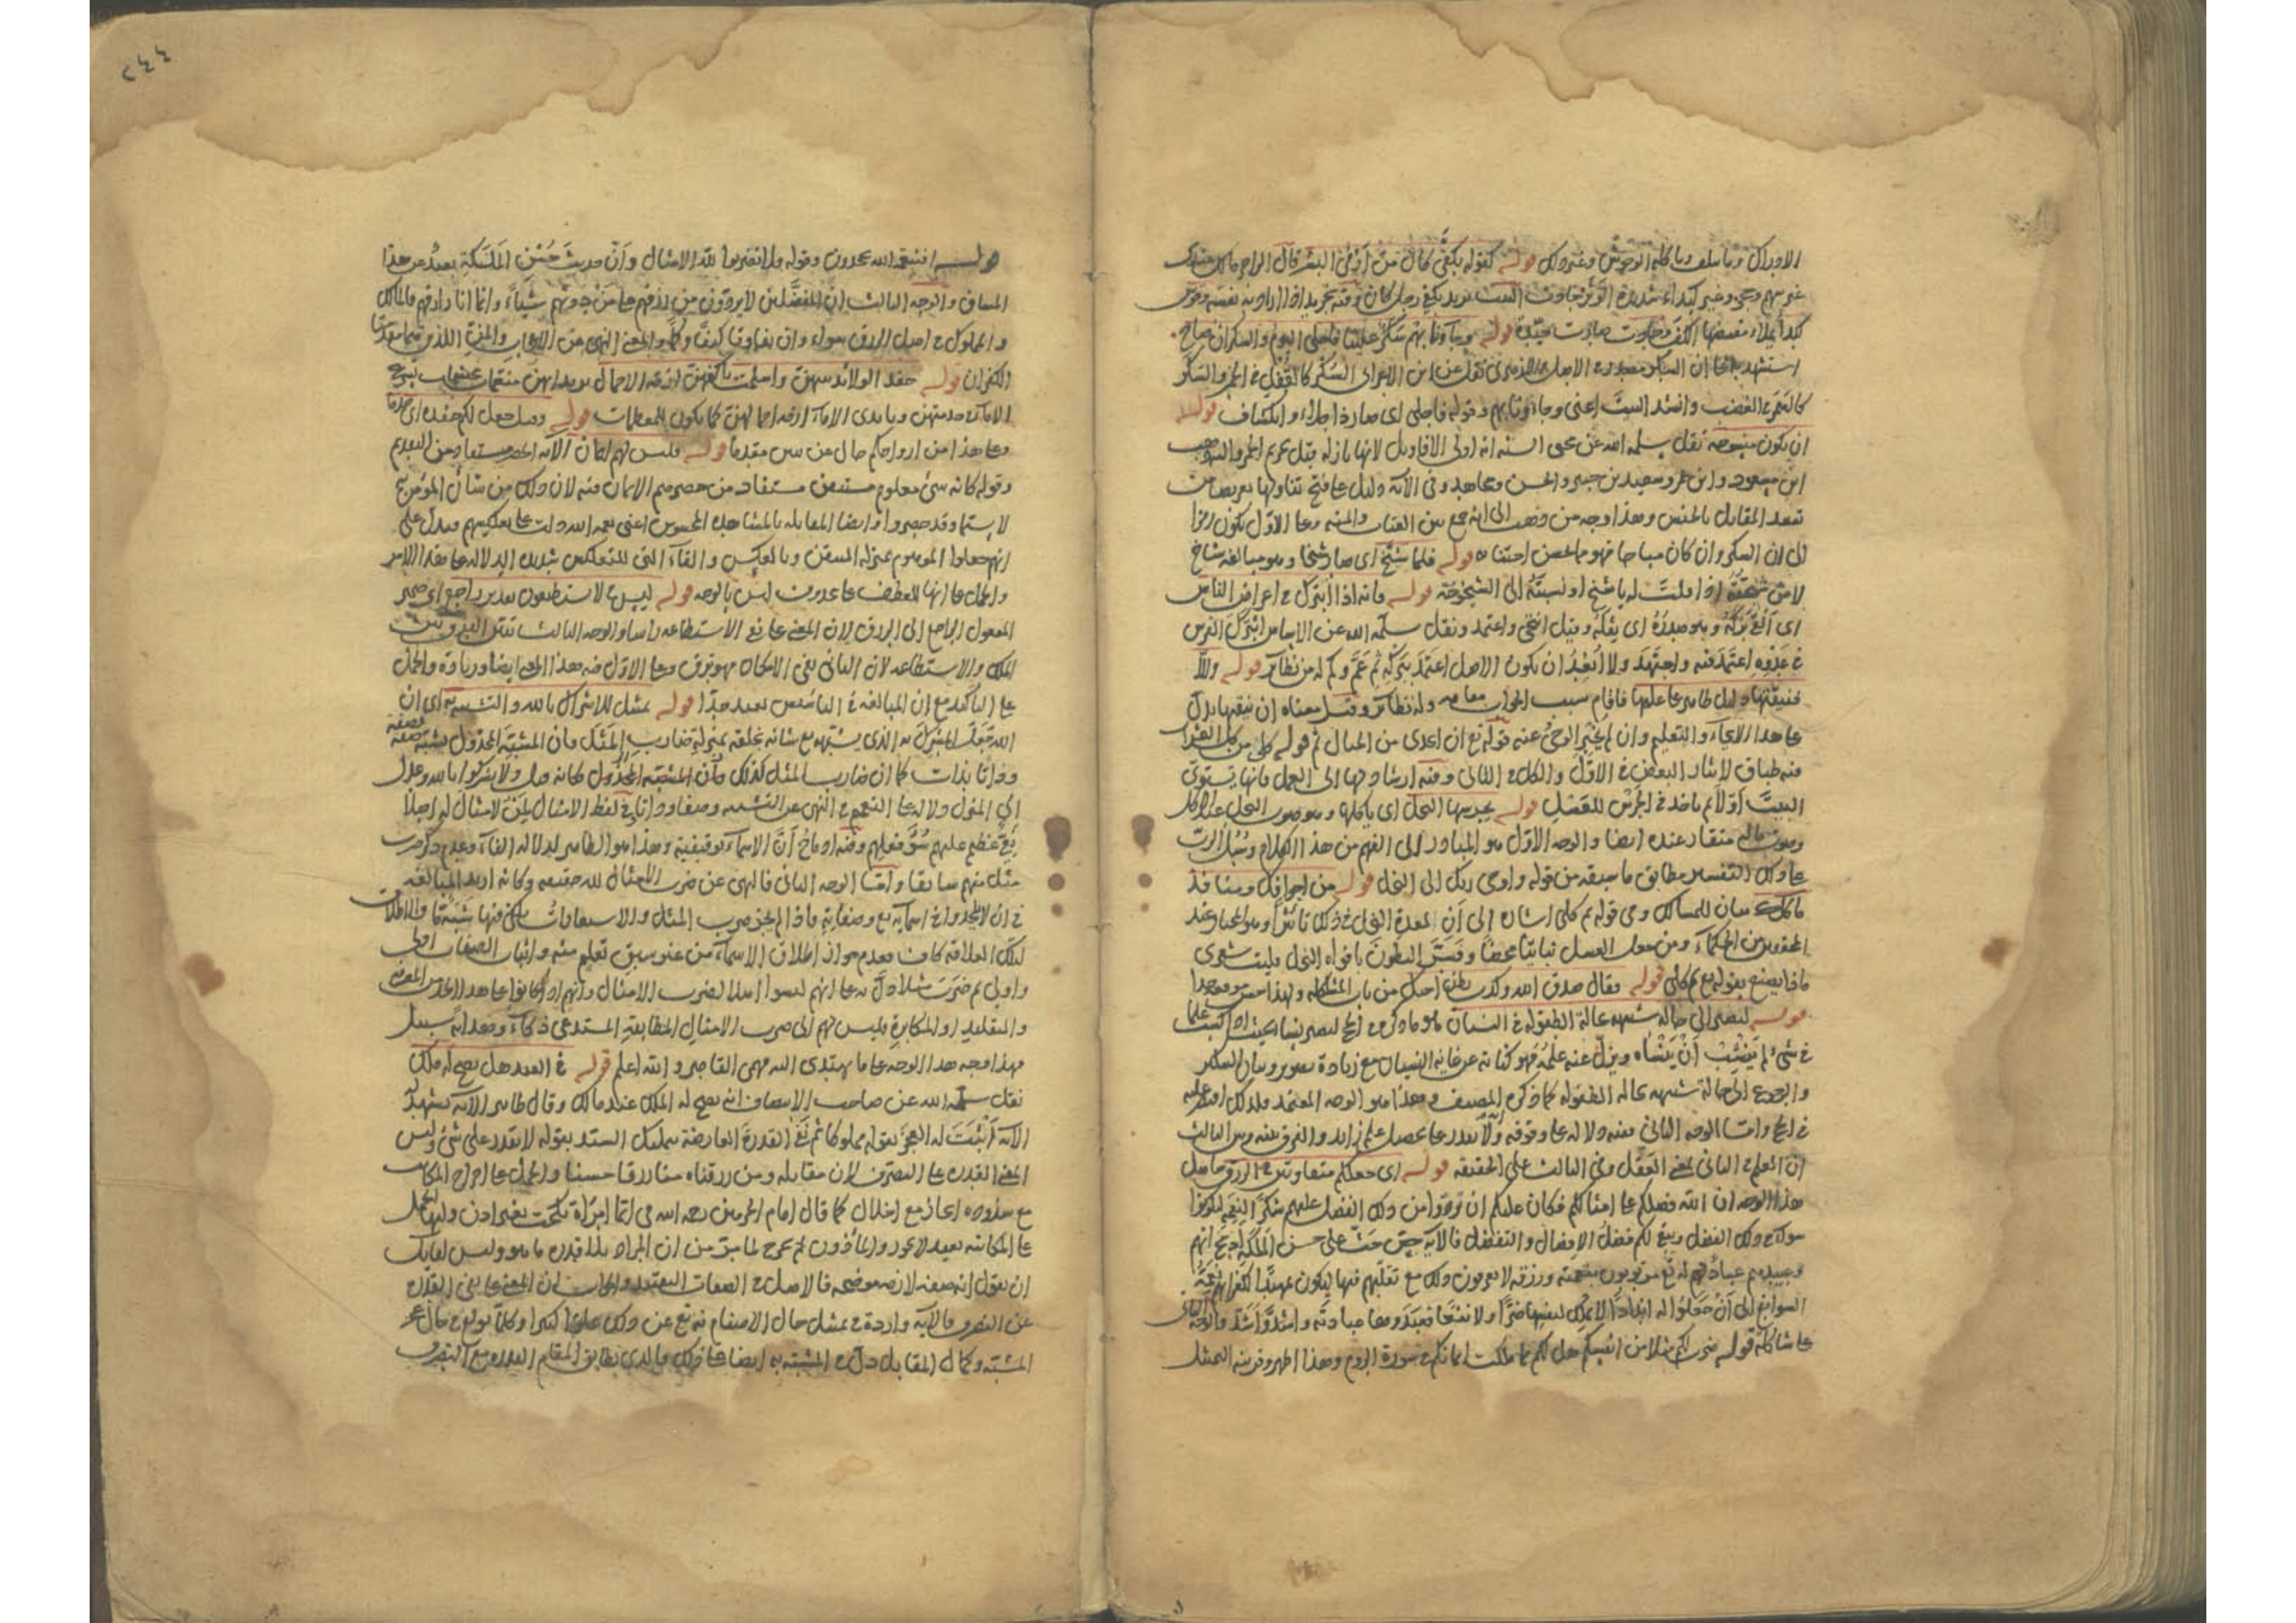 الادراك وما يأكله الوحوش وغير ذلك قوله كقوله بكفى كان من أرمى البشر قال الراجز مالك عندى
غير سهم وحجر وغير كبداء شديدة الوتر جادت البيت يريد بكفى رجل كان وفيه تجريد اذا اراد به نفسه وقوس
كبداء يملأ مقبضها الكف وجادت صارت جيدة قوله وجاؤنا بهم سكر علينا فاجلى اليوم والسكران صاح
استشهد به على ان السكر مصدر في الاصل الازهرى نقل عن ابن الاعرابى السكر
الغضب وانشد البيت اعنى وجاؤنا بهم وقوله فاجلى اى صار ذا جلاء وانكشاف قوله
ان يكون منسوخة نقل سلمه الله عن محيى السنه انه اولى الاقاويل لانها نازلة قبل تحريم الخمر واليه ذهب
ابن مسعود وابن عمر وسعيد بن جبير والحسن ومجاهد وفى الآية دليل على قبح تناولها تعريضا من
تقييد المقابل بالحسن وهذا وجه من ذهب الى انه جمع بين العتاب والمنه وعلى الاول يكون رمزا
الى ان السكر وان كان مباحا فهو مما يحسن اجتنابه قوله فلما شيخ اى صار شيخا وهو مبالغة شاخ
لا من شيخته اذا قلت له يا شيخ او نسبته الى الشيخوخة قوله فانه اذا ابترك في اعراض الناس
اى القى بركه وهو صدره اى ثقله وقيل انتحى واعتمد ونقل سلمه الله عن الاساس ابترك الفرس
في عدوه اعتمد فيه واجتهد ولا ابعد ان يكون الاصل اعتمد ببركه ثم عم وكم له من نظائر قوله والا
فنيقتها دليل ظاهر على علمها فاقام سبب الجواب مقامه وله نظائر وقيل معناه ان نيقتها يدل
على هذا الايحاء والتعليم وان لم يخبر الوحى عنه قوله تع ان اتخذى من الجبال ثم قوله كلى من كل الثمرات
فيه طباق لايثار البعض في الاول والكل في الثانى وفيه ارشاد لها الى العمل فانها تسوى
البيت اولا ثم تأخذ في الجرس للعسل قوله بجرسها النحل اى يأكلها وهو صوت النحل عند الاكل
وصوت ماله منقار عنده ايضا والوجه الاول هو المتبادر الى الفهم من هذا الكلام وسبل الرب
على ذلك التفسير يطابق ما سبقه من قوله واوحى ربك الى النحل قوله من اجوافك ومنافذ
مآكلك بيان للمسالك وفى قوله ثم كلى اشارة الى ان لمعدة النحل في ذلك تأثيرا وهو المختار عند
المحققين من الحكماء ومن جعل العسل نباتيا محضا وفسر البطون بافواه النحل فليت شعرى
ماذا يصنع بقوله تع ثم كلى قوله فقال صدق الله وكذب بطن اخيك من باب المشاكلة ولهذا حسن موقعه جدا
قوله ليصير الى حالة شبيهة بحالة الطفولة في النسيان هو ما ذكره في الحج ليصير نساء بحيث اذا كسب علما
في شئ لم ينشب ان ينساه ويزل عنه علمه فهو كناية عن غاية النسيان مع زيادة تصوير وبيان للسكر
والرجوع الى حالة شبيهة بحالة الطفولة كما ذكره المصنف وهذا هو الوجه المعتمد ولذلك اقتصر عليه
في الحج واما الوجه الثانى ففيه دلالة على وقوفه وانه لا يقدر على تحصيل علم زايد والفرق بينه وبين الثالث
ان العلم في الثانى بمعنى العقل وفى الثالث على الحقيقة قوله اى جعلكم متفاوتين في الرزق حاصل
هذا الوجه ان الله فضلكم على امثالكم فكان عليكم ان تردوا من ذلك الفضل عليهم شكرا لنعمه لتكونوا
سواء في ذلك الفضل ويبقى لكم فضل الافضال والتفضل فالآية حث على حسن الملكة
وعبيدهم عباد له تع مرزوقون بنعمته ورزقه لا يعرفون ذلك مع تقلبهم فيها ليكون تمهيدا لكفرانهم نعمه
السوابغ الى ان جعلوا له اندادا لا يملك لنفسها ضرا ولا نفعا فعبدوها عبادته واشد واشد والوجه الثانى
على شاكلة قوله ضرب لكم مثلا من انفسكم هل لكم مما ملكت ايمانكم في سورة الروم وهذا اظهر وقرينه التمثيل
٢٤٤
قوله افبنعمة الله يجحدون وقوله فلا تضربوا لله الامثال وان حديث حسن الملكة بعيد عن هذا
المساق والوجه الثالث ان المفضلين لا يردون من رزقهم على من دونهم شيئا وانما انا رازقهم فالمالك
والمملوك في اصل الرزق سواء وان تفاوتا كيفا وكما والمعنى النهى عن الاعجاب والمن اللذين هما مقدمتا
الكفران قوله حفد الولائد بينهن واسلمت باكفهن ازمة الاجمال يريد انهن منعمات
الاماء خدمتهن وبايدى الاماء ازمة اجمالهن كما يكون للمعظمات قوله وقيل جعل لكم حفدة اى خدما
وعلى هذا من ازواجكم حال عن بنين مقدما قوله فليس لهم ايمان الآية الحصر مستفاد من التقديم
وقوله كانه شئ معلوم مستيقن مستفاد من حصرهم الايمان فيه لان ذلك من شأن المؤمن به
لا سيما وقد حصروا وايضا المقابلة بالمشاهد المحسوس اعنى نعمة الله دلت على تعكيسهم فيدل على
انهم جعلوا الموهوم بمنزلة المتيقن وبالعكس والفاء التى للتعكيس شديدة الدلالة على هذا الامر
والحمل على انها للعطف على محذوف ليس بالوجه قوله ليس في لا يستطيعون تقدير راجع اى ضمير
المفعول الراجع الى الرزق لان المعنى على نفى الاستطاعة رأسا والوجه الثالث
الملك والاستطاعة لان الثانى نفى الامكان فهو ترق وعلى الاول فيه هذا المعنى ايضا وزيادة والحمل
على التأكيد مع ان المبالغة في التأسيس بعيد جدا قوله تمثيل للاشراك بالله والتشبيه به اى ان
الله جعل المشرك به الذى يشبهه مع شانه بخلقه بمنزلة ضارب المثل فان المشبه المخذول يشبه صفة بصفة
وذاتا بذات كما ان ضارب المثل كذلك فكانه قيل ولا تشركوا بالله وعدل
الى المنزل دلالة على التعميم في النهى عن التشبيه وصفا وذاتا وفى لفظ الامثال لمن لا مثال له اصلا
نعى عظيم عليهم سوء فعلهم وفيه ادماج ان الاسماء توقيفية وهذا هو الظاهر لدلالة الفاء وعدم ذكر ضرب
مثل منهم سابقا واما الوجه الثانى فالنهى عن ضرب الامثال لله حقيقة وكانه اريد المبالغة
في ان لا يلحدوا في اسمائه تع وصفاته فاذا لم يجز ضرب المثل والاستعارات يكفى فيها شبه ما والاطلاق
لتلك العلاقة كاف فعدم جواز اطلاق الاسماء من غير سبق تعليم منه واثبات الصفات اولى
واولى ثم ضرب مثلا دل به على انهم ليسوا اهلا لضرب الامثال وانهم اذا كانوا على هذا الحد من المعرفة
والتقليد او المكابرة فليس لهم الى ضرب الامثال المطابقة المستدعى ذكاء وهداية سبيل
فهذا وجه هذا الوجه على ما يهتدى اليه فهمى القاصر والله اعلم قوله في العبد هل يصح له ملك
نقل سلمه الله عن صاحب الانتصاف انه يصح له الملك عند مالك وقال ظاهر الآية يشهد له
لانه اثبت له العجز بقوله مملوكا ثم نفى القدرة العارضة بتمليك السيد بقوله لا يقدر على شئ وليس
المعنى القدرة على التصرف لان مقابله ومن رزقناه منا رزقا حسنا والحمل على اخراج المكاتب
مع شذوذه اعجاز مع اخلال كما قال امام الحرمين رحمه الله فى ايما امرأة نكحت بغير اذن وليها الحمل
على المكاتبة بعيد لا يجوز والمأذون لم يخرج لما مر من ان المراد بالقدرة ما هو وليس لقايل
ان يقول انه صفة لازمة موضحة فالاصل في الصفات التقييد والجواب ان المعنى على نفى القدرة
عن التصرف فالآية واردة في تمثيل حال الاصنام به تع عن ذلك علوا كبيرا وكلما بولغ في حال عجز
المشبه وكمال المقابل دل في المشبه به ايضا على ذلك فالذى يطابق المقام القدرة مع التصرف